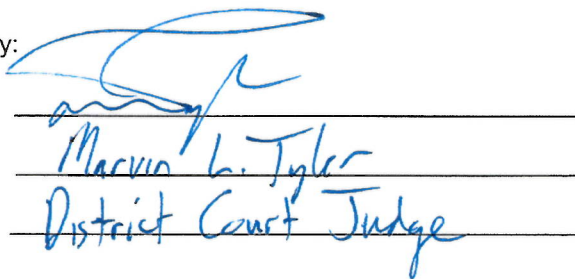 y:
Marvin L. Tyler
District Court Judge